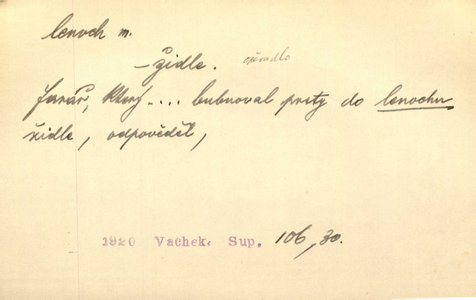 lenoch m.
– židle. opěradlo
farář, který .... bubnoval prsty do lenochu
židle, odpověděl,
1920 Vachek. Sup. 106, 30.